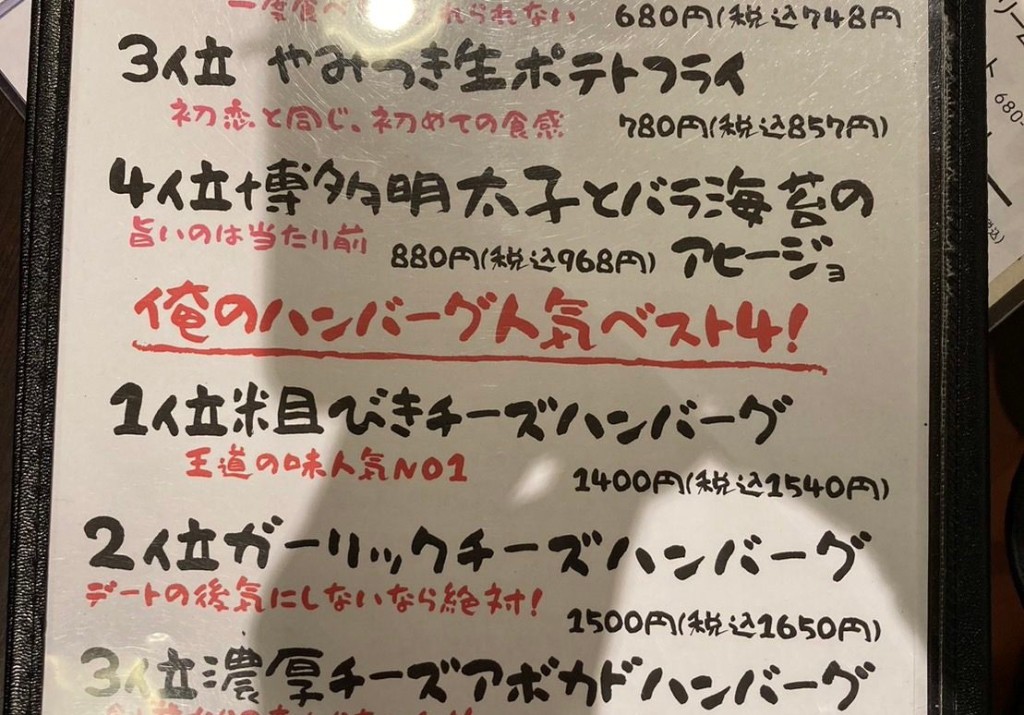 一度食べ られない 680円(税込748円
3位 やみつき生ポテトフライ
初恋と同じ、初めての食感 780円(税込857円)
4位博多明太子とバラ海苔の
旨いのは当たり前 880円(税込968円) アヒージョ
俺のハンバーグ人気ベスト4!
1位粗びきチーズハンバーグ
王道の味人気NO1
1400円(税込1540円)
2位ガーリックチーズハンバーグ
デートの後気にしないなら絶対!
1500円(税込1650円)
3位濃厚チーズアボカドハンバーグ
680